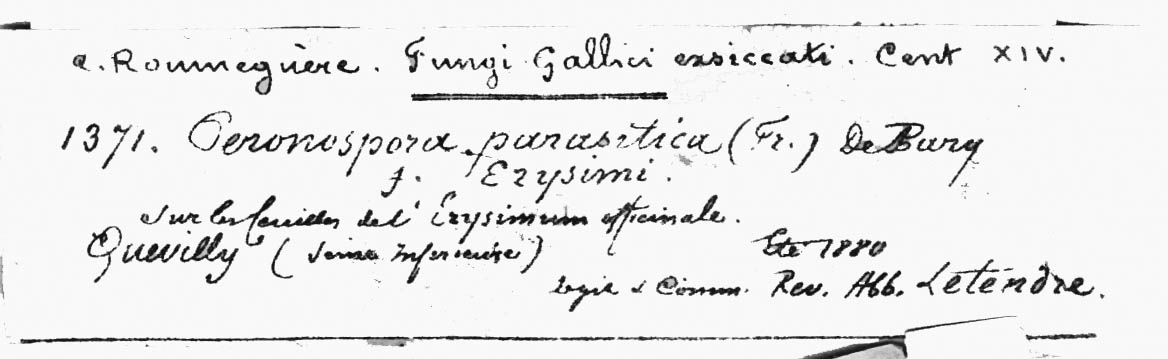 C. Roumeguère. Fungi Gallici exsiccati. Cent XIV.
1371. Peronospora parasitica (Fr.) De Bary
f. Erysimi.
Sur les feuilles de l'Erysimum officinale.
Quevilly (Seine Inferieure) Eté 1880
legit & Comm. Rev. Abb. Letendre.